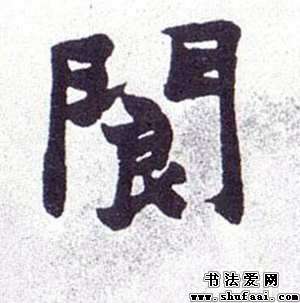 閬
书法爱网
www.shufaai.com